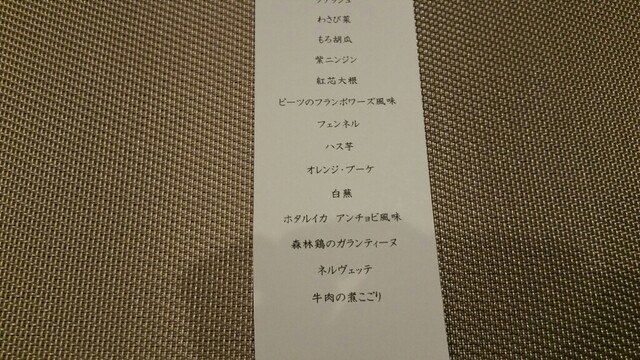 わさび菜
もろ胡瓜
紫ニンジン
紅芯大根
ビーツのフランボワーズ風味
フェンネル
ハス芋
オレンジ・ブーケ
白蕪
ホタルイカ アンチョビ風味
森林鶏のガランティーヌ
ネルヴェッテ
牛肉の煮こごり